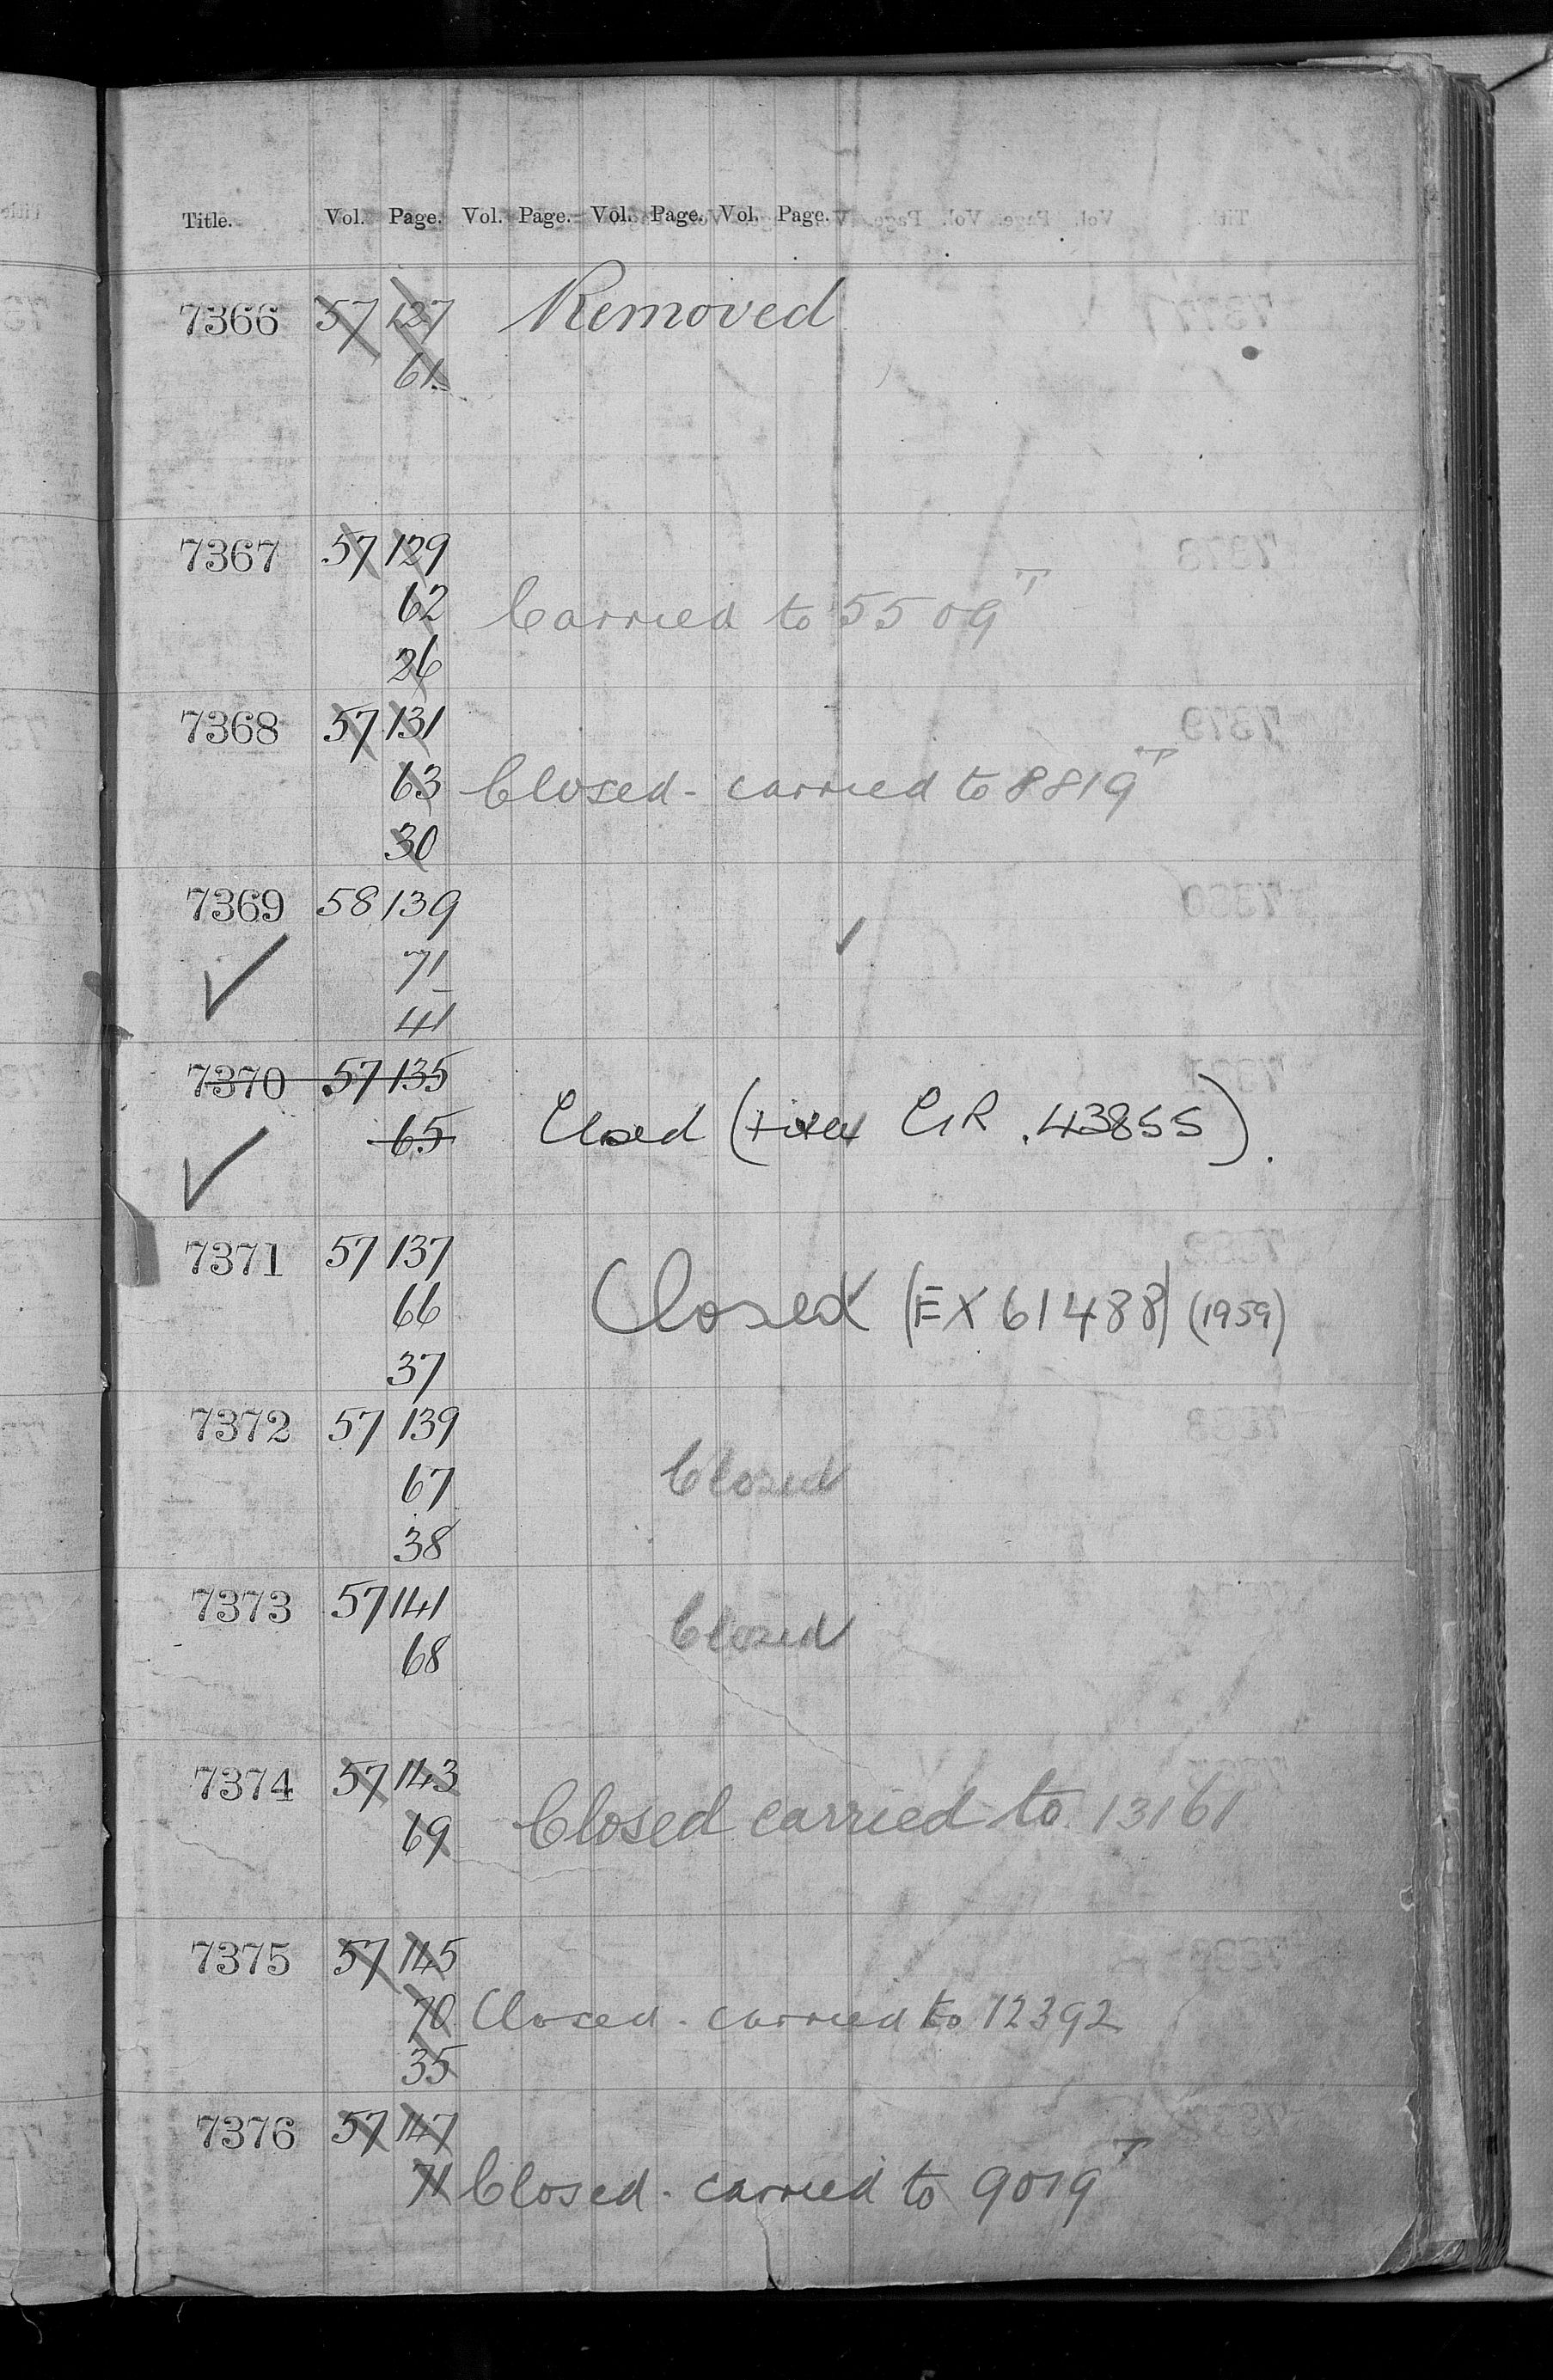 Title. Vol. Page. Vol. Page. Vol. Page. Vol. Page.
7366 57 127 Removed
61
7367 57 129
62 Carried to 5509T
26
7368 57 131
63 Closed - carried to 8819T
30
7369 58 139
71
41
7370 57 135
65 Closed ( GR 43855).
7371 57 137
66 Closed (EX 61488) (1959)
37
7372 57 139
67 Closed
38
7373 57 141
68 Closed
7374 57 143
69 Closed carried to 13161
7375 57 145
70 Closed - carried to 12392
35
7376 57 147
71 Closed - carried to 9019T